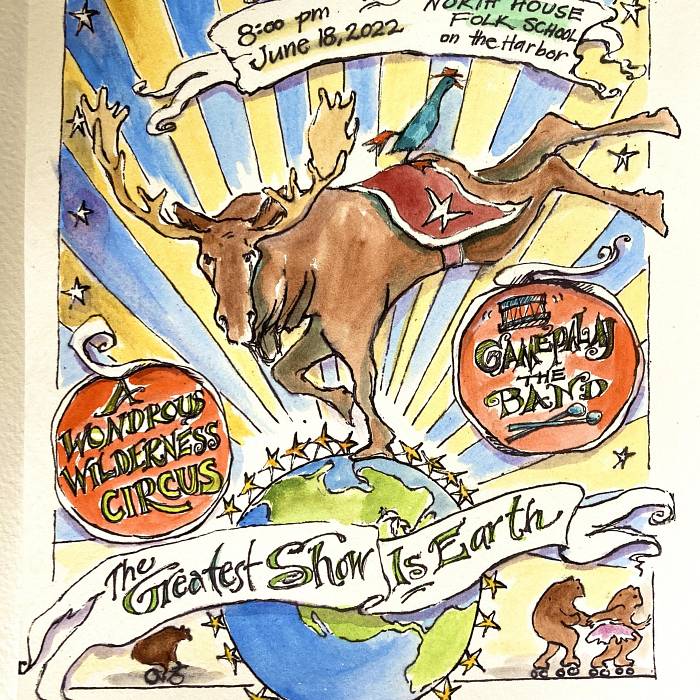 8:00 pm
June 18, 2022
NORTH HOUSE
FOLK SCHOOL
on the Harbor
GAMEPLAN
THE
BAND
A
WONDROUS
WILDERNESS
CIRCUS
The Greatest Show Is Earth